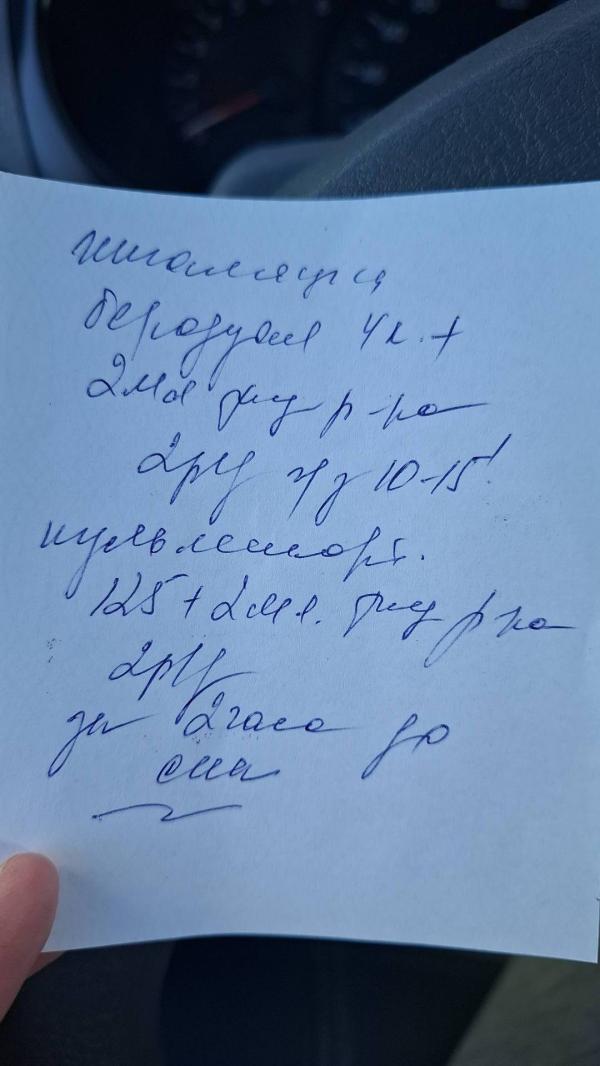 Ингаляции
беродуал 4к. +
2мл физ р-ра
2р/д ч/з 10-15'
пульмикорт.
125 + 2мл. физ р-ра
2р/д
за 2 часа до
сна